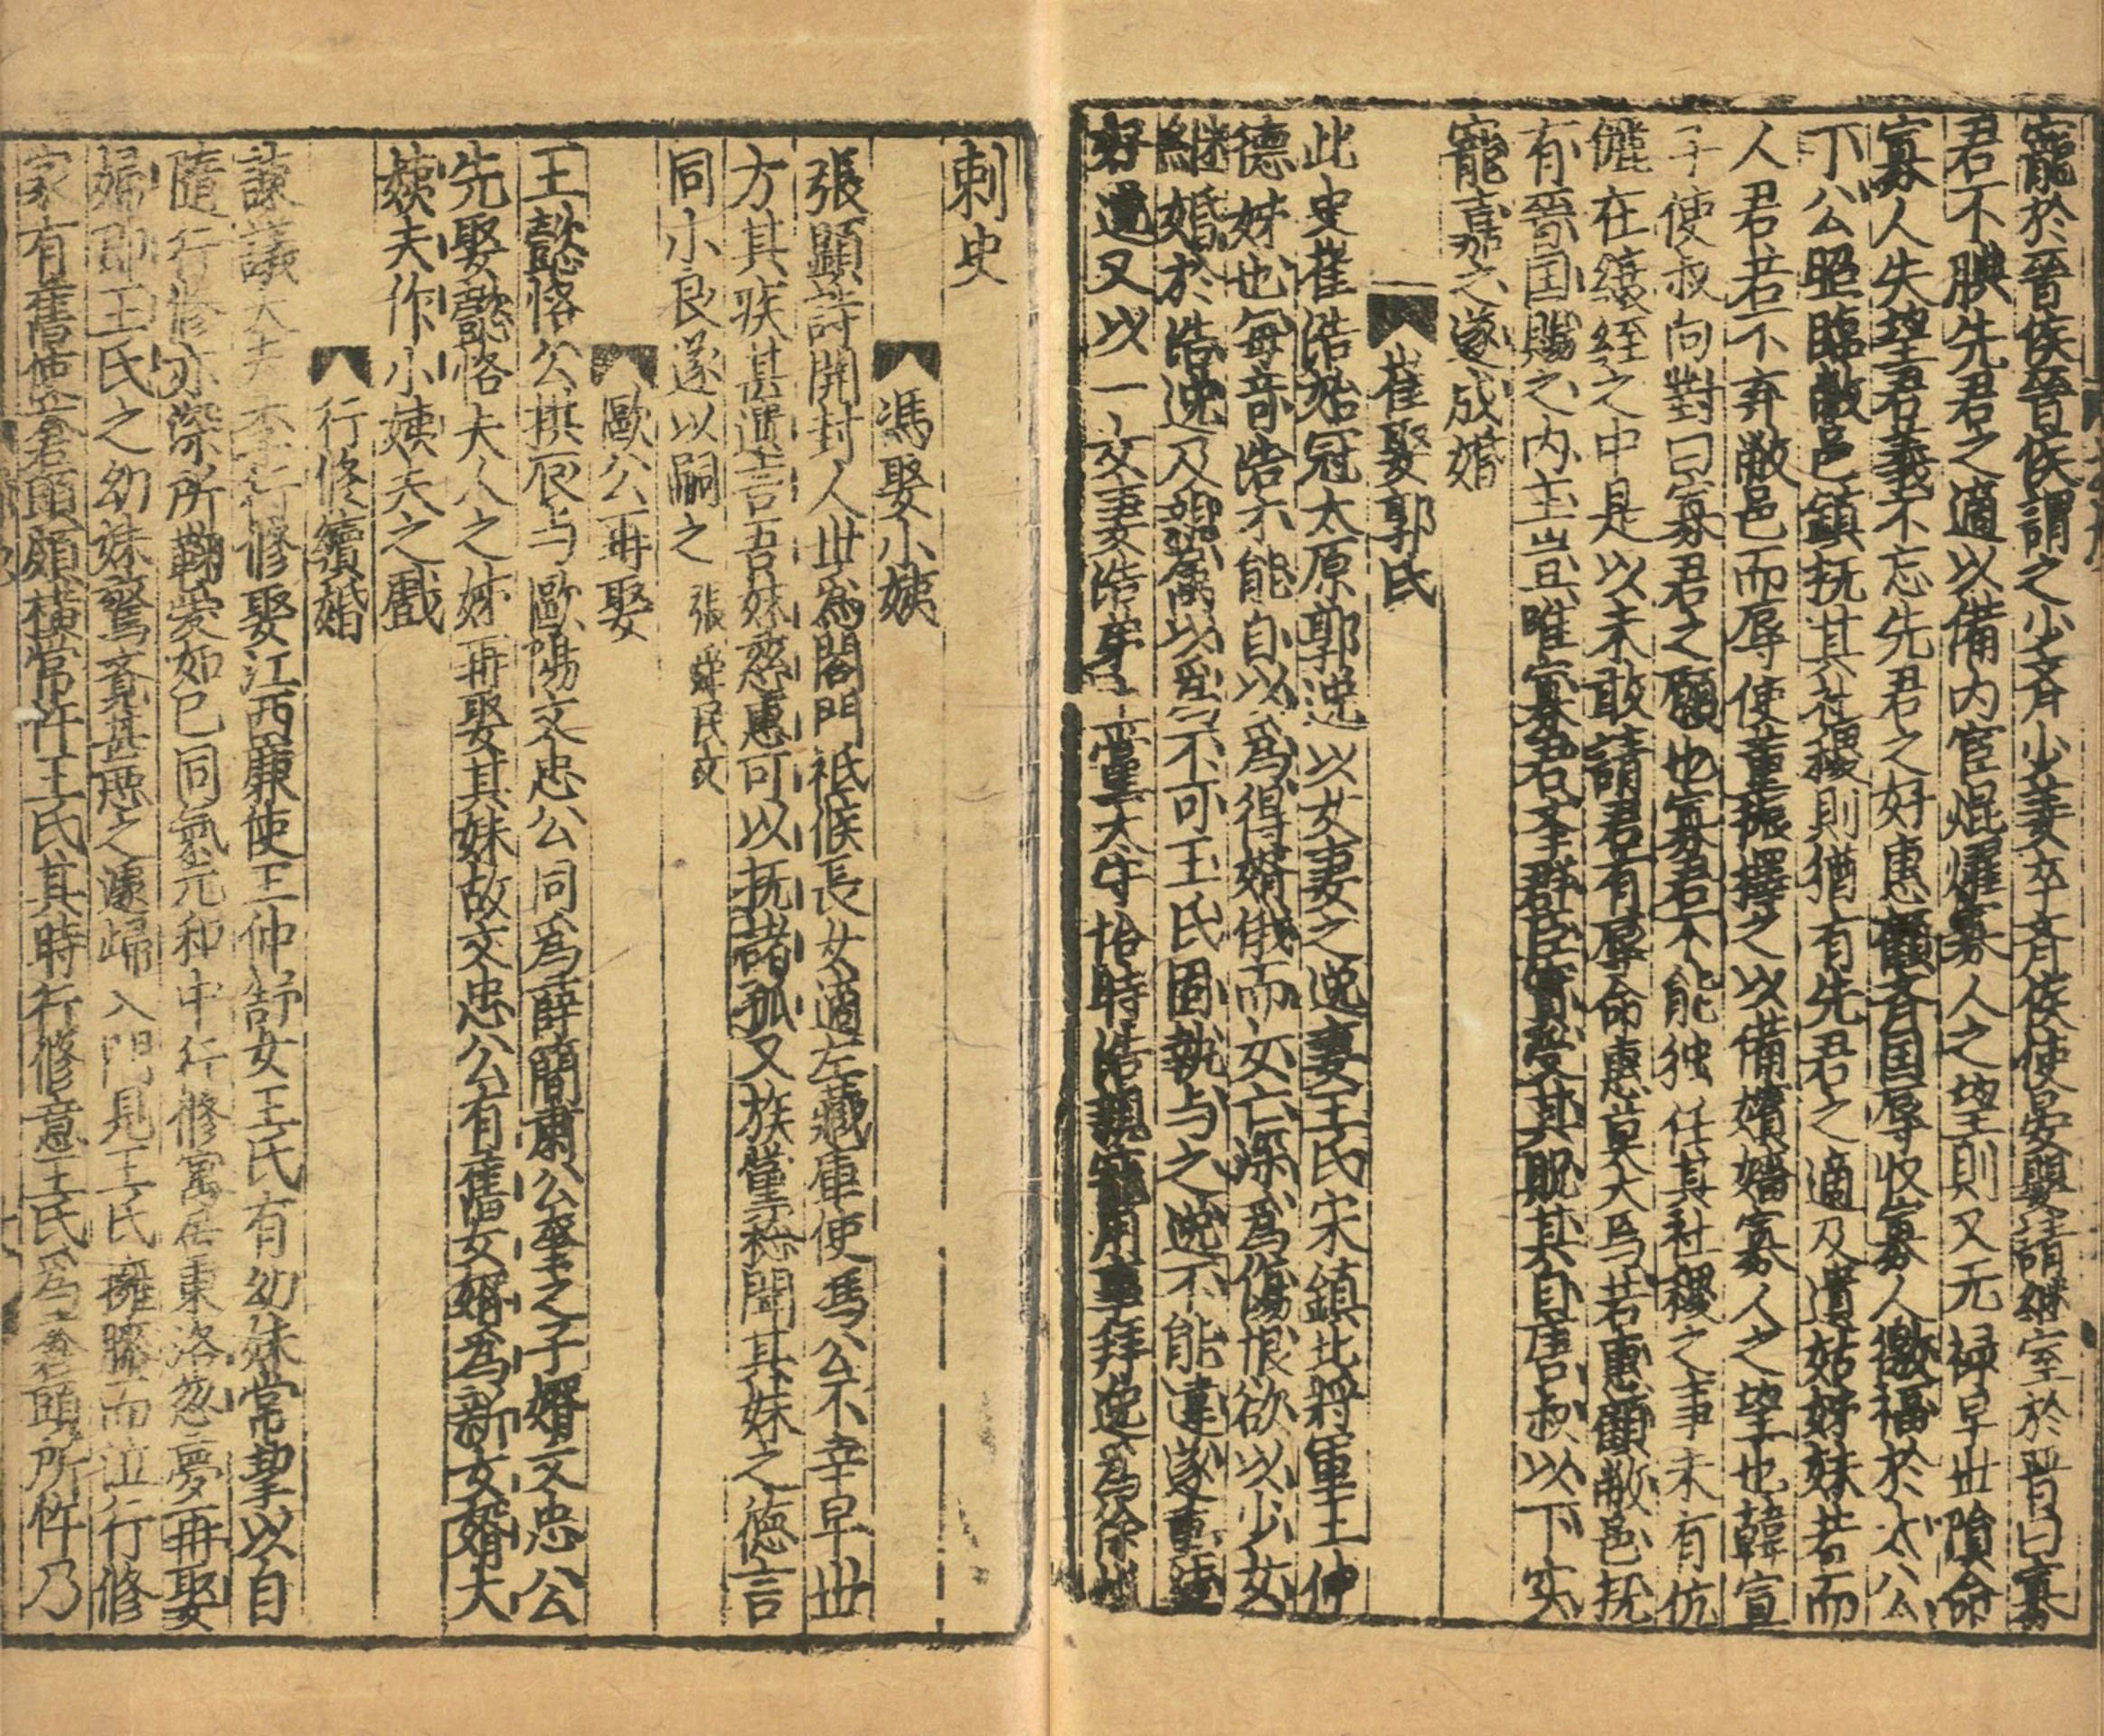 寵於晉侯晉侯謂之少齊少姜卒齊侯使晏嬰請継室於晉曰寡
君不腆先君之適以備内官焜燿寡人之望則又无禄早世隕命
寡人失望君若不忘先君之好惠顧齊国辱收寡人徼福於太公
丁公照臨敝邑鎮抚其社稷則猶有先君之適及遺姑姊妹若而
人君若不弃敝邑而辱使董振擇之以備嬪嬙寡人之望也韓宣
子使叔向對曰寡君之願也寡君不能独任其社稷之事未有伉
儷在縗絰之中是以未敢請君有辱命惠莫大焉若惠顧敝邑抚
有晉国賜之内主豈唯寡君舉群臣實受其貺其自唐叔以下实
寵嘉之遂成婚
崔娶郭氏
此史崔浩始冠太原郭逸以女妻之逸妻王氏宋鎮北将軍王仲
德姊也每竒浩才能自以爲得婿俄而女亡深爲傷恨欲以少女
継婚於浩逸及親属以爲不可王氏固執与之逸不能違遂重結
好逸又以一女妻浩弟上黨太守恬時浩親寵用事拜逸爲徐州
刺史
馮娶小姨
張顯詩開封人世爲閤門祗候長女適左藏庫使馮公不幸早世
方其疾甚遺言吾妹慈惠可以抚諸孤又族黨称聞其妹之徳言
同小良遂以嗣之 張舜民文
歐公再娶
王懿恪公拱辰与歐陽文忠公同爲薛簡肅公奎之子婿文忠公
先娶懿恪夫人之姊再娶其妹故文忠公有舊女婿爲新女婿大
姨夫作小姨夫之戲
行修續婚
諫議大夫李行修娶江西廉使王仲舒女王氏有幼妹常挈以自
隨行修亦深所鞠爱如已同氣元和中行修寓居東洛忽夢再娶
婦即王氏之幼妹驚覚甚惡之遽歸入門見王氏擁膝而泣行修
家有舊使蒼頭頗横常忤王氏其時行修意王氏爲蒼頭所忤乃